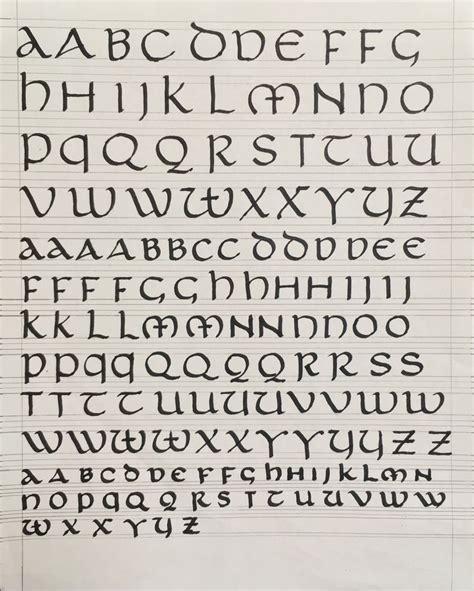 a A B C D D E F F G
h H I J K L M M N N O
P q Q Q R S T T U U
V W W W X X Y Y Z
a a A A B B C C D D D D E E
F F F F G G h h H H I J I J
K K L L M M M N N N N O O
P P q q Q Q Q Q R R S S
T T T T U U U U V V W W
W W W W X X Y Y Y Y Z Z
a A B C D D E F F G G h H I J K L M M N
N O P q Q Q R S T T U U V W W
W X X Y Y Z